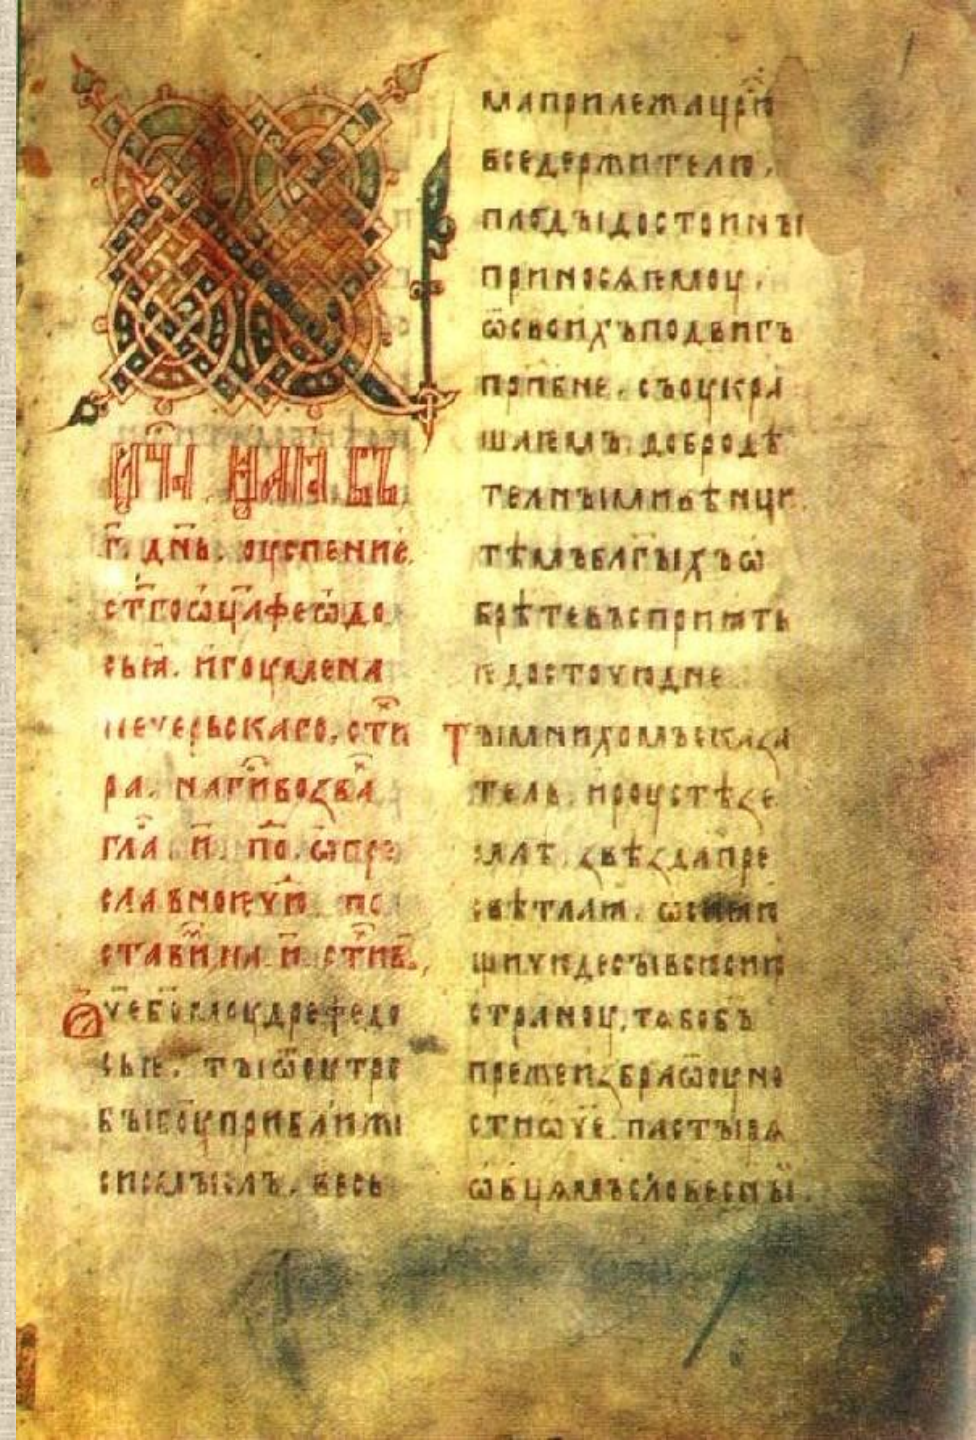 м҃ца маꙗ въ
г҃. дн҃ь. оуспение
ст҃гоѡц҃афеѡдо
сьꙗ. игоумена
печерьскаго. сти
ра. нагⷭ҇ивозва
гла и по. ѡпре
славноѥчю по
стави на и стив.
ѿчебг҃омоудрефедо
сьѥ. тыѿоутро
быбоуприближи
сисмыслъ. весь
маприлежацр҃ю
вседержителю.
плодыдостоины
приносѧѥмоу.
ѿсвоихъподвигъ
прп҃бне. съоукра
шаѥмъ. добродѣ
телнымивѣнци
тѣмъблг҃ыхъѡ
брѣтевъсприꙗть
ѥдостоиноне
тымнихомъсказа
тель. ироустѣзе
млѣ. звѣздапре
свѣтлаꙗ. ѡсиꙗю
шичюдесывсюсию
страноу. тѧбобъ
прежеизбраѿоуно
стиѿч҃е. пастырѧ
ѡвцѧмъсловесны.